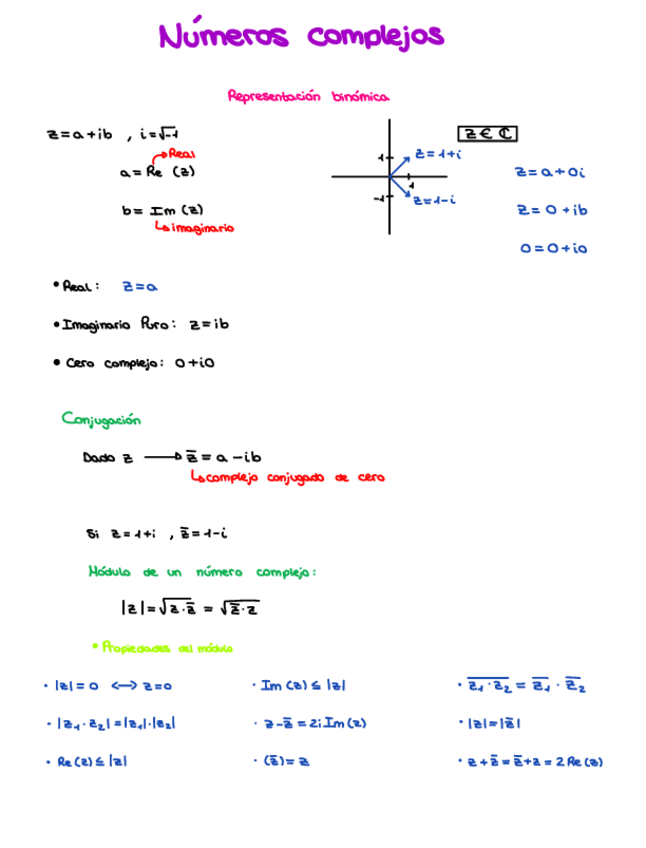 Números complejos
Representación binómica
z = a + ib , i = √-1
Real
a = Re (z)
b = Im (z)
imaginario
1
-1
1
z = 1 + i
z = 1 - i
z ∈ ℂ
z = a + 0i
z = 0 + ib
0 = 0 + i0
• Real: z = a
• Imaginario Puro: z = ib
• Cero complejo: 0 + i0
Conjugación
Dado z ⟶ z̅ = a - ib
↳ complejo conjugado de cero
Si z = 1 + i , z̅ = 1 - i
Módulo de un número complejo:
|z| = √(z · z̅) = √(z̅ · z)
• Propiedades del módulo
· |z| = 0 <-> z = 0
· Im (z) ≤ |z|
· z₁ · z₂ (overline) = z̅₁ · z̅₂
· |z₁ · z₂| = |z₁| · |z₂|
· z - z̅ = 2i Im (z)
· |z| = |z̅|
· Re (z) ≤ |z|
· (z̅) = z
· z + z̅ = z̅ + z = 2 Re (z)